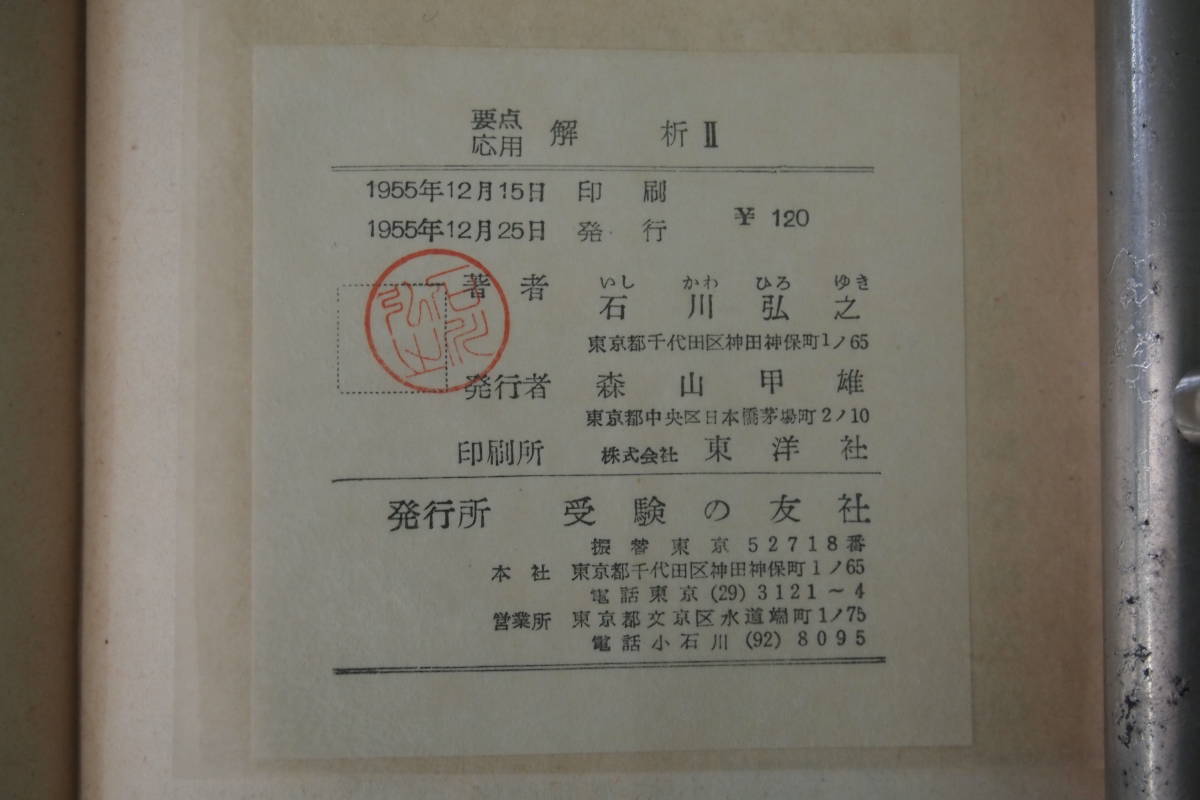 要点
応用 解析 II
1955年12月15日 印刷
1955年12月25日 発行 ¥ 120
いし かわ ひろ ゆき
著者 石川弘之
東京都千代田区神田神保町1ノ65
発行者 森山甲雄
東京都中央区日本橋茅場町2ノ10
印刷所 株式会社 東洋社
発行所 受験の友社
振替東京52718番
本社 東京都千代田区神田神保町1ノ65
電話東京(29)3121~4
営業所 東京都文京区水道端町1ノ75
電話小石川(92)8095